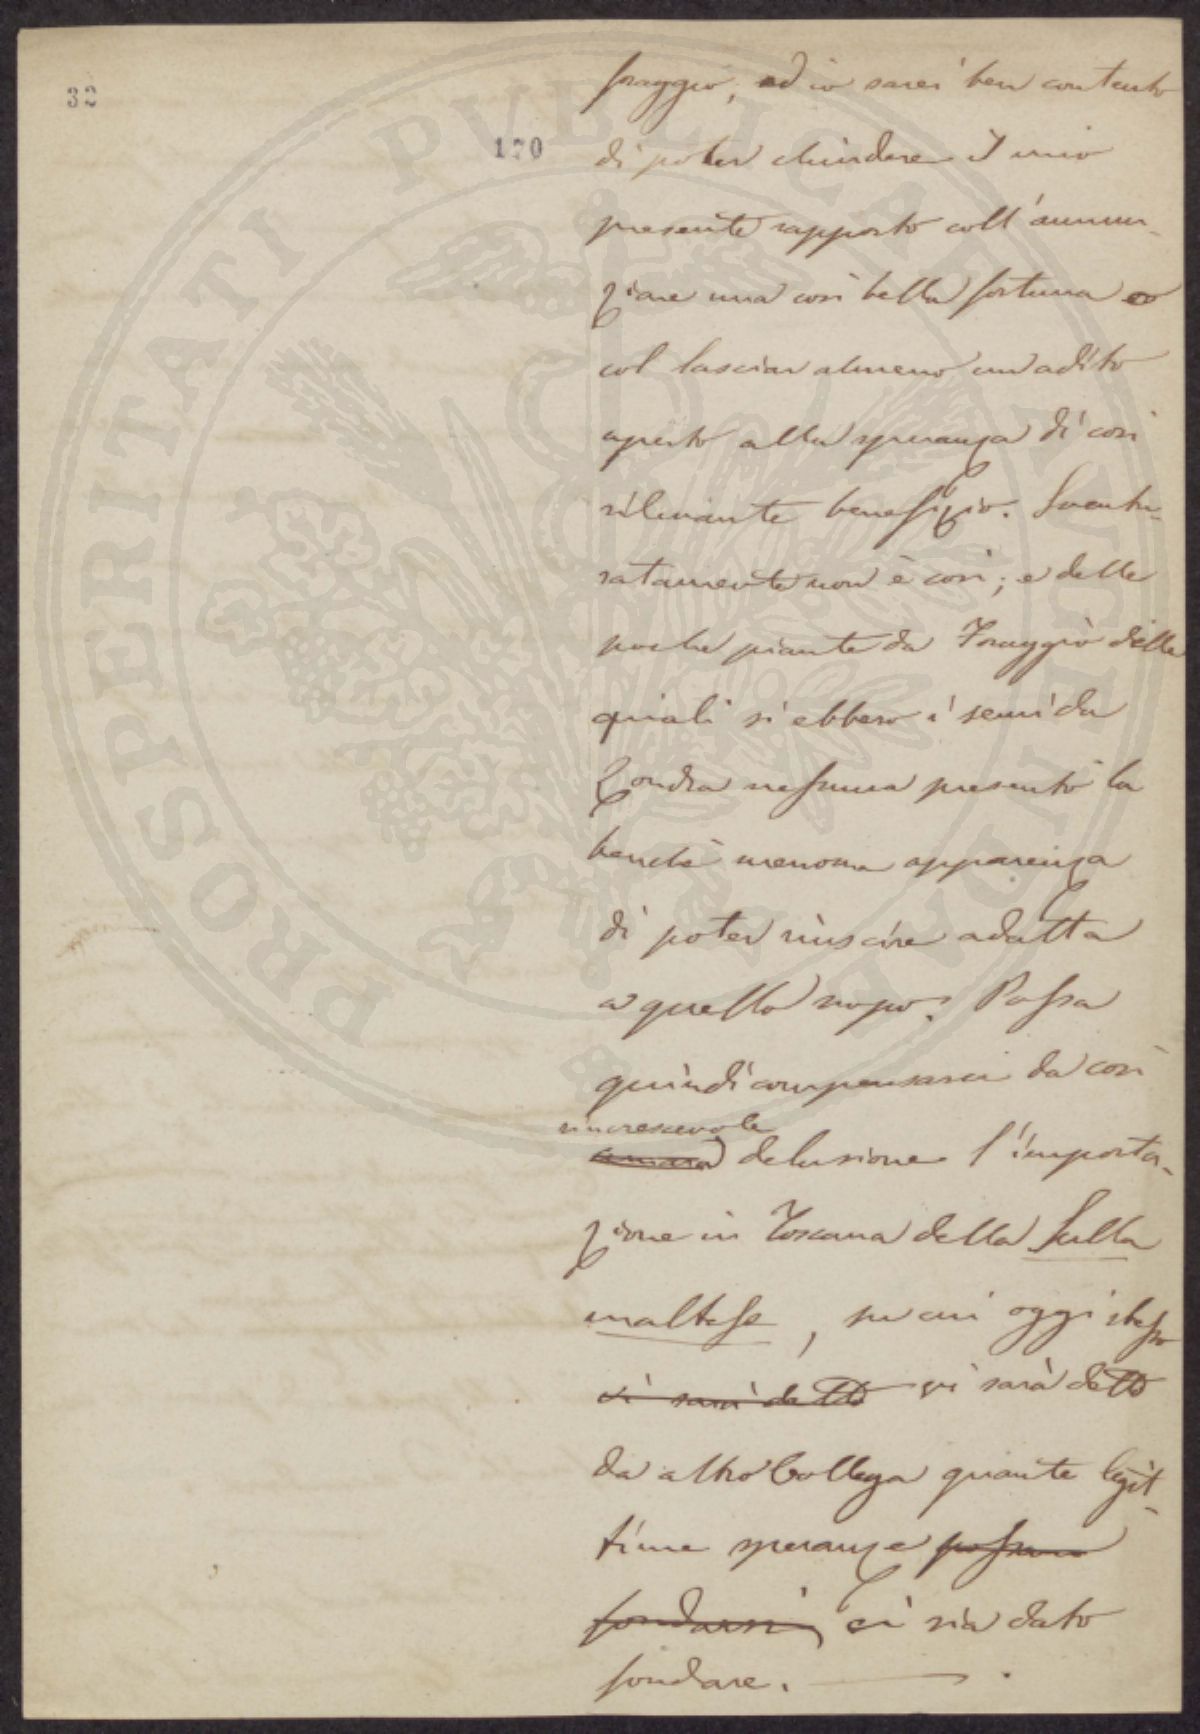 32
170
foraggio, ed io sarei ben contento
di poter chiudere il mio
presente rapporto coll'annun-
ziare una così bella fortuna o
col lasciar almeno un adito
aperto alla speranza di così
rilevante benefizio. Sventu-
ratamente non è così; e delle
poche piante da Foraggio delle
quali si ebbero i semi da
Londra nessuna presentò la
benchè menoma apparenza
di poter riuscire adatta
a quello uopo. Possa
quindi compensarci da così
rincrescevole
amara delusione l'importa-
zione in Toscana della Sulla
maltese, su cui oggi stesso
vi sarà detto vi sarà detto
da altro Collega quante legit-
time speranze possono
fondarsi, ci sia dato
fondare.
PROSPERITATI PUBLICAE AUGENDAE